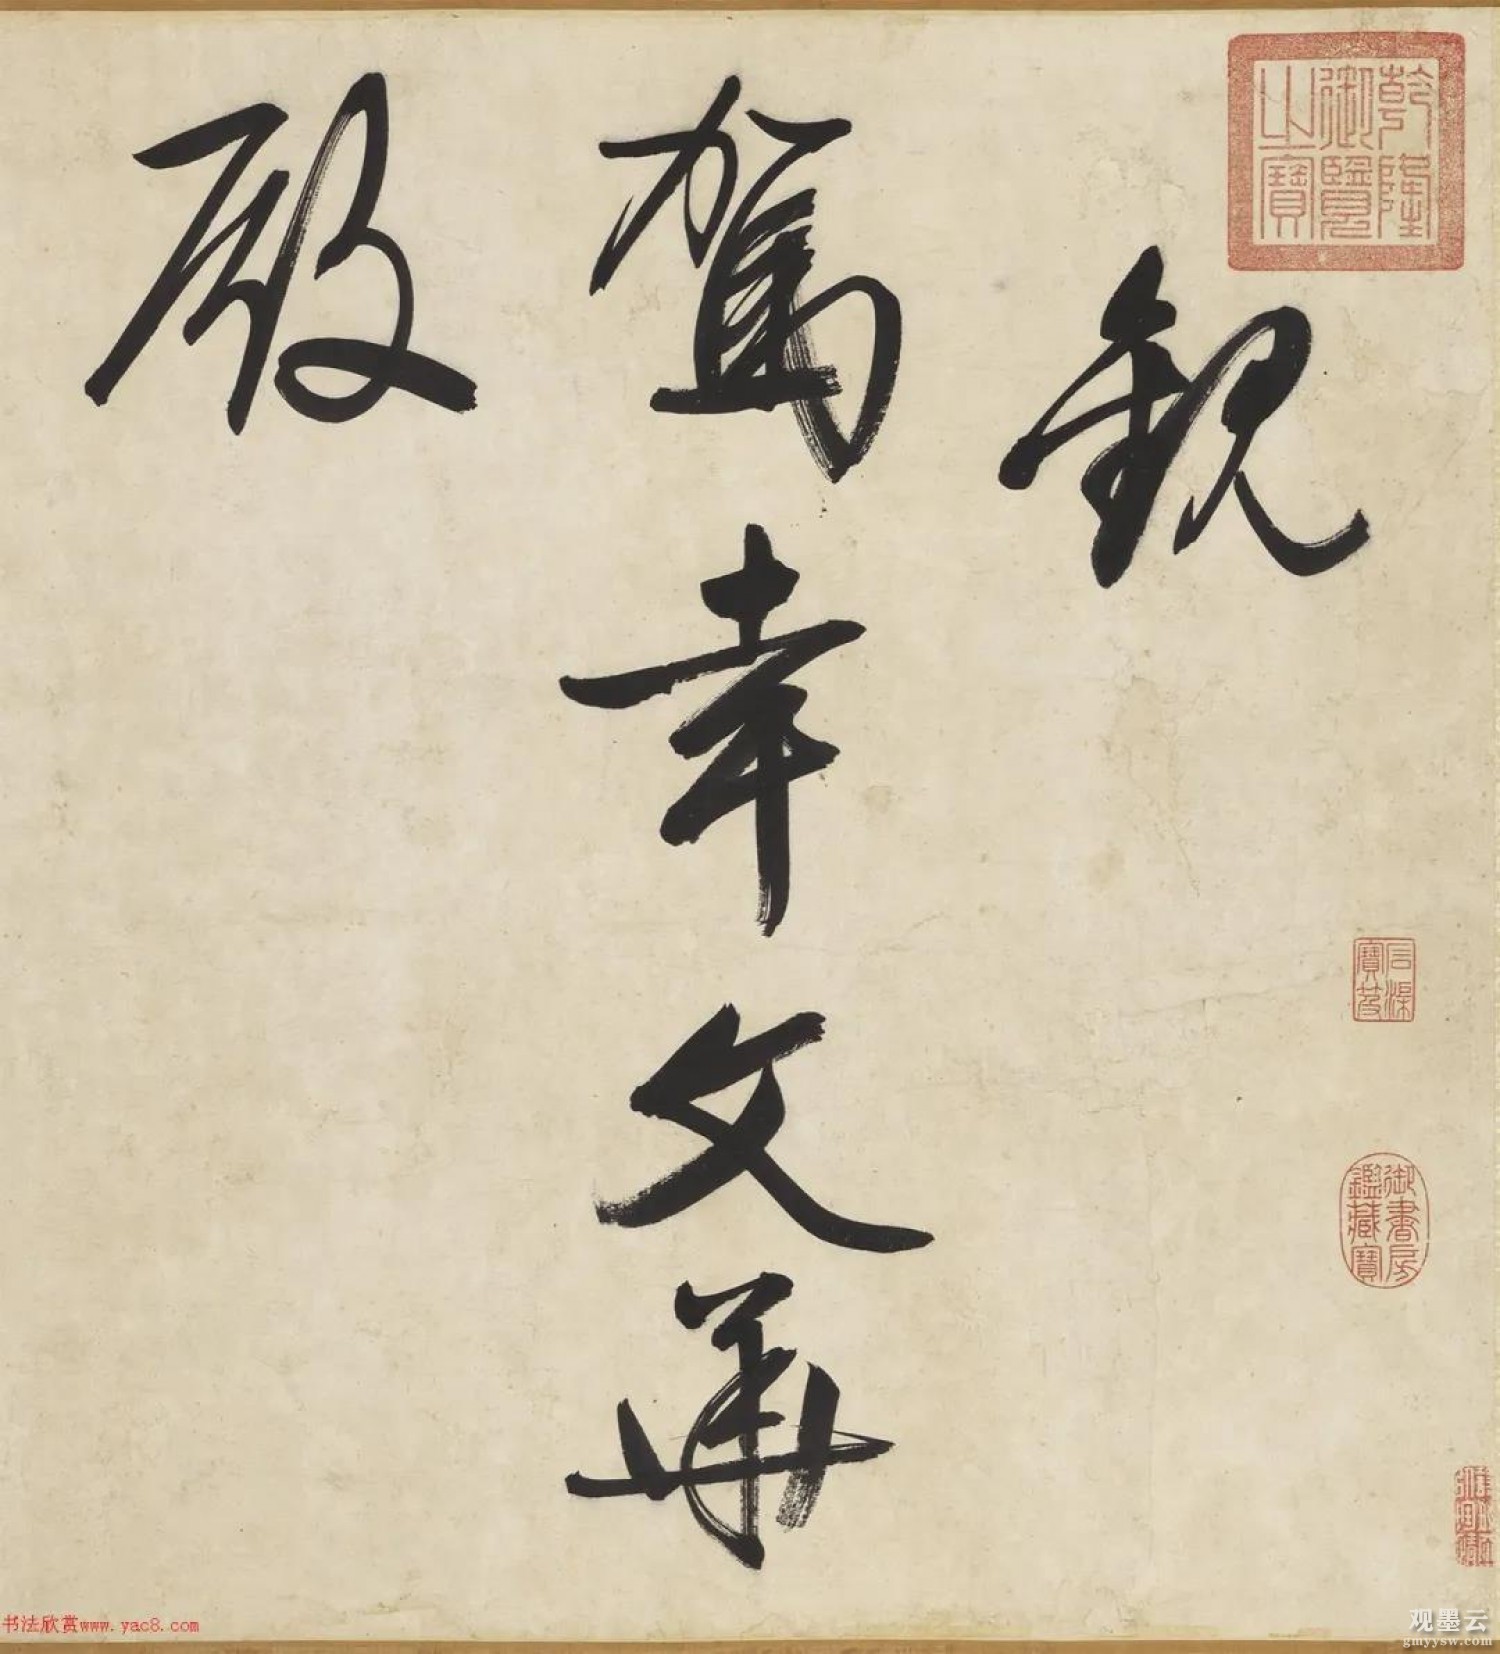 乾隆
御覽
之寶
觀
石渠
寶笈
御書房
鑑藏寶
駕幸文華
殿
书法欣赏www.yac8.com
观墨云
gmyysw.com